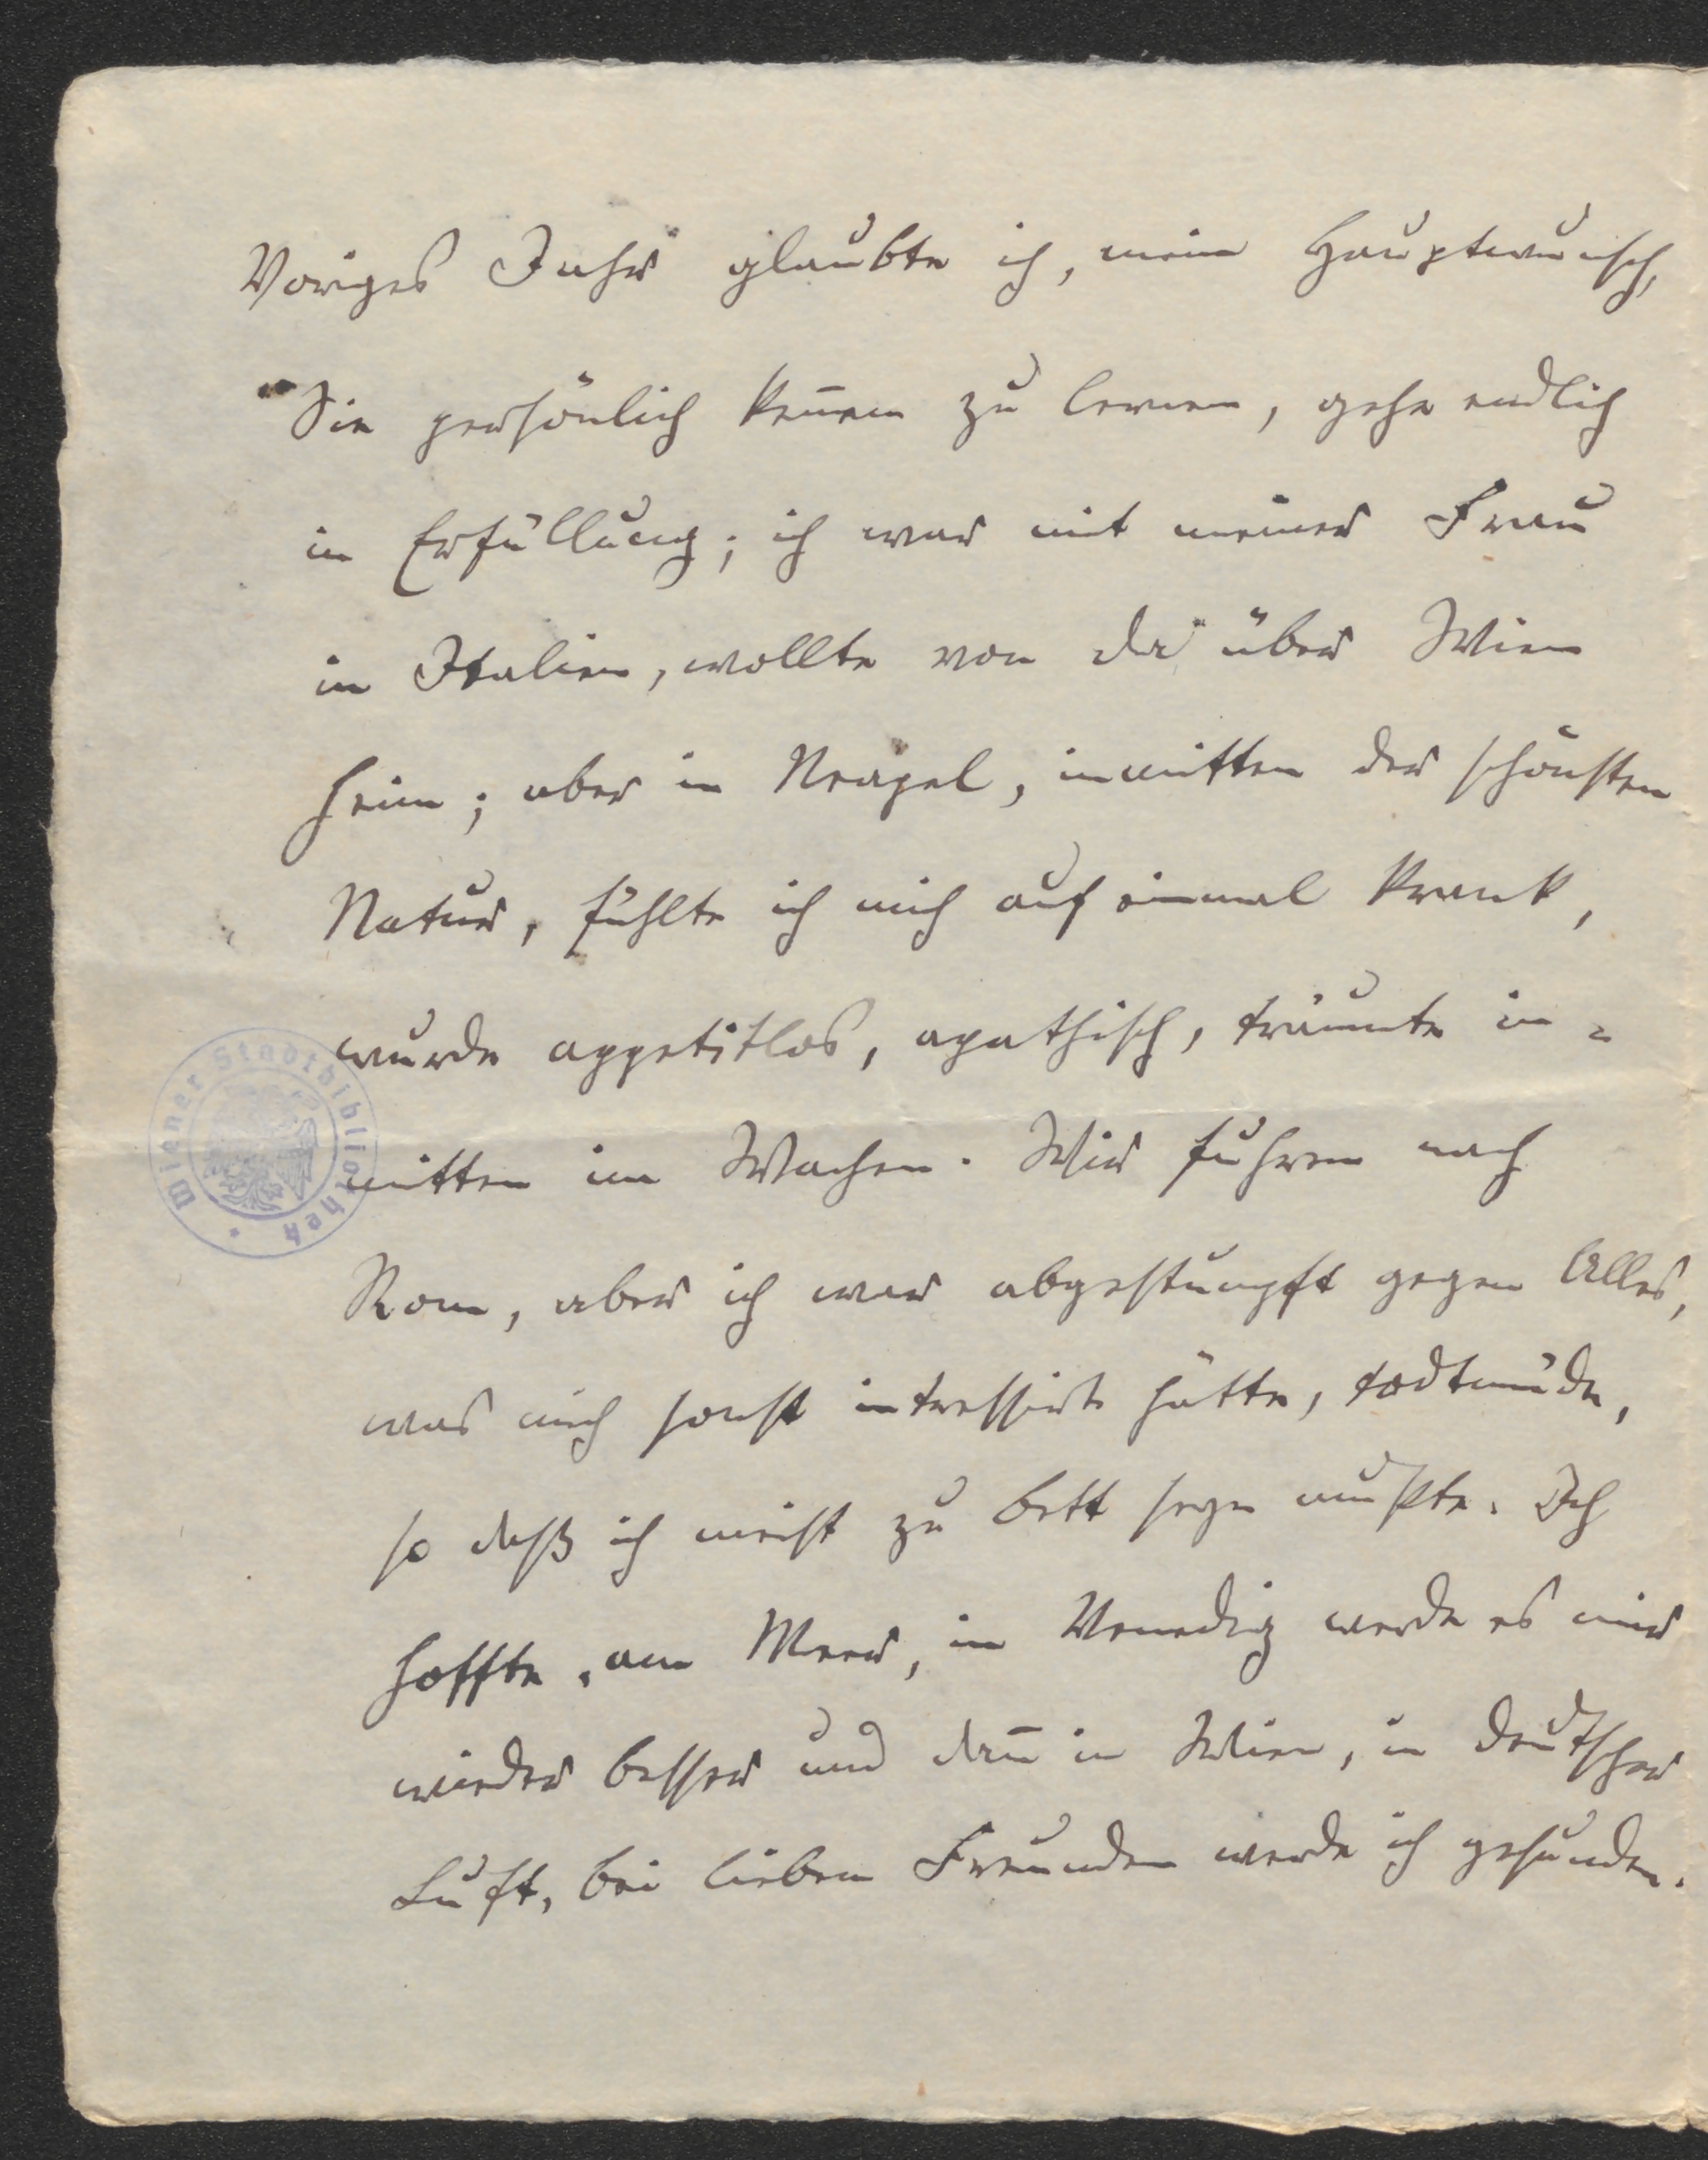 Voriges Jahr glaubte ich, mein Hauptwunsch,
Sie persönlich keñen zu lernen, gehe endlich
in Erfüllung; ich war mit meiner Frau
in Italien, wollte von da über Wien
heim; aber in Neapel, inmitten der schönsten
Natur, fühlte ich mich auf einmal krank,
wurde appetitlos, apathisch, träumte in=
mitten im Wachen. Wir fuhren nach
Rom, aber ich war abgestumpft gegen Alles,
was mich sonst intressirt hätte, todtmüde,
so daß ich meist zu Bett seyn mußte. Ich
hoffte, am Meer, in Venedig werde es mir
wieder besser und dañ in Wien, in deutscher
Luft, bei lieben Freunden werde ich gesunden.
Wiener Stadtbibliothek